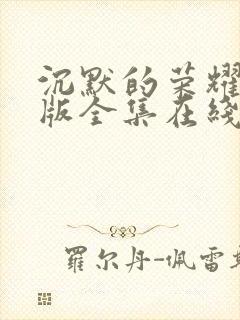 沉默的荣耀
版全集在线
羅尔丹-佩雷